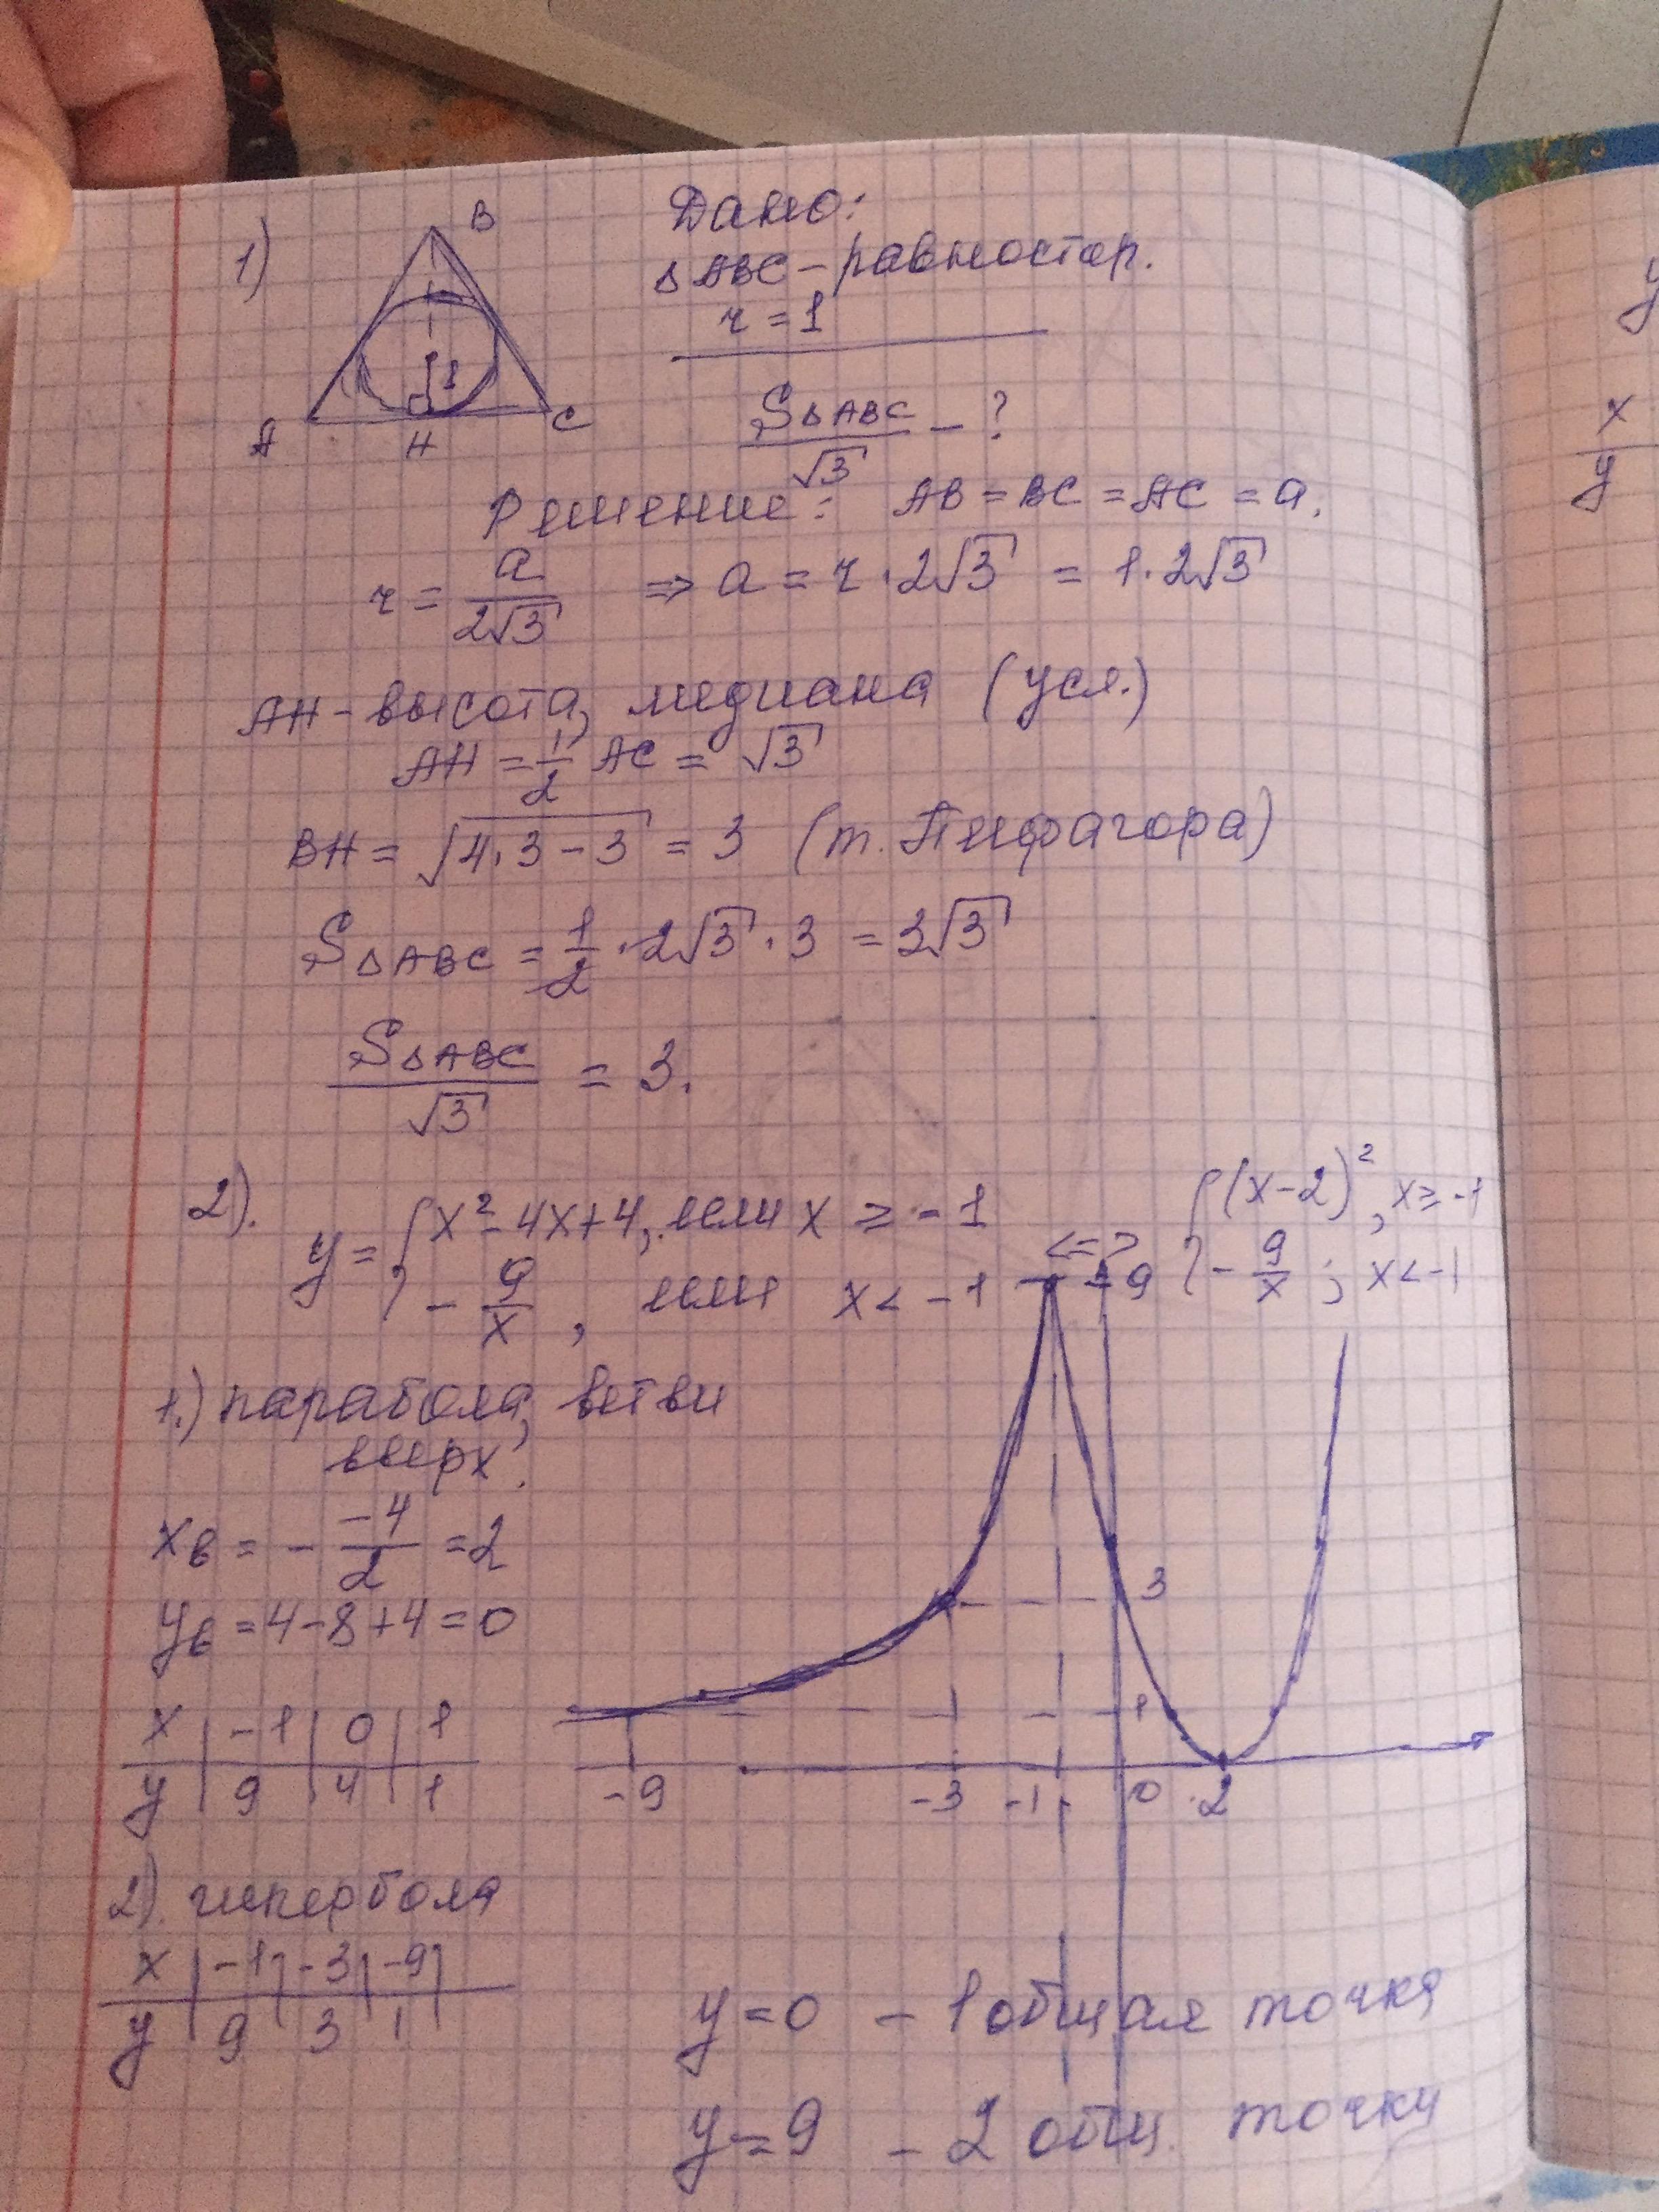 1)
B
A
H
C
1
Дано:
△ABC – равностор.
r = 1
S△ABC/√3 – ?
Решение: AB = BC = AC = a.
r = a/(2√3) ⇒ a = r · 2√3 = 1 · 2√3
AH – высота, медиана (усл.)
AH = 1/2 AC = √3
BH = √(4·3 – 3) = 3 (т. Пифагора)
S△ABC = 1/2 · 2√3 · 3 = 3√3
S△ABC/√3 = 3.
2).
y = { x² – 4x + 4, если x ≥ –1
– 9/x, если x < –1
<=> { (x–2)², x ≥ –1
– 9/x ; x < –1
9
1.) парабола, ветви
вверх.
xв = – –4/2 = 2
yв = 4 – 8 + 4 = 0
x | –1 | 0 | 1
y | 9 | 4 | 1
3
1
–9 –3 –1 0 2
2). гипербола
x | –1 | –3 | –9 |
y | 9 | 3 | 1 |
y = 0 – 1 общая точка
y = 9 – 2 общ. точки
y
x
y